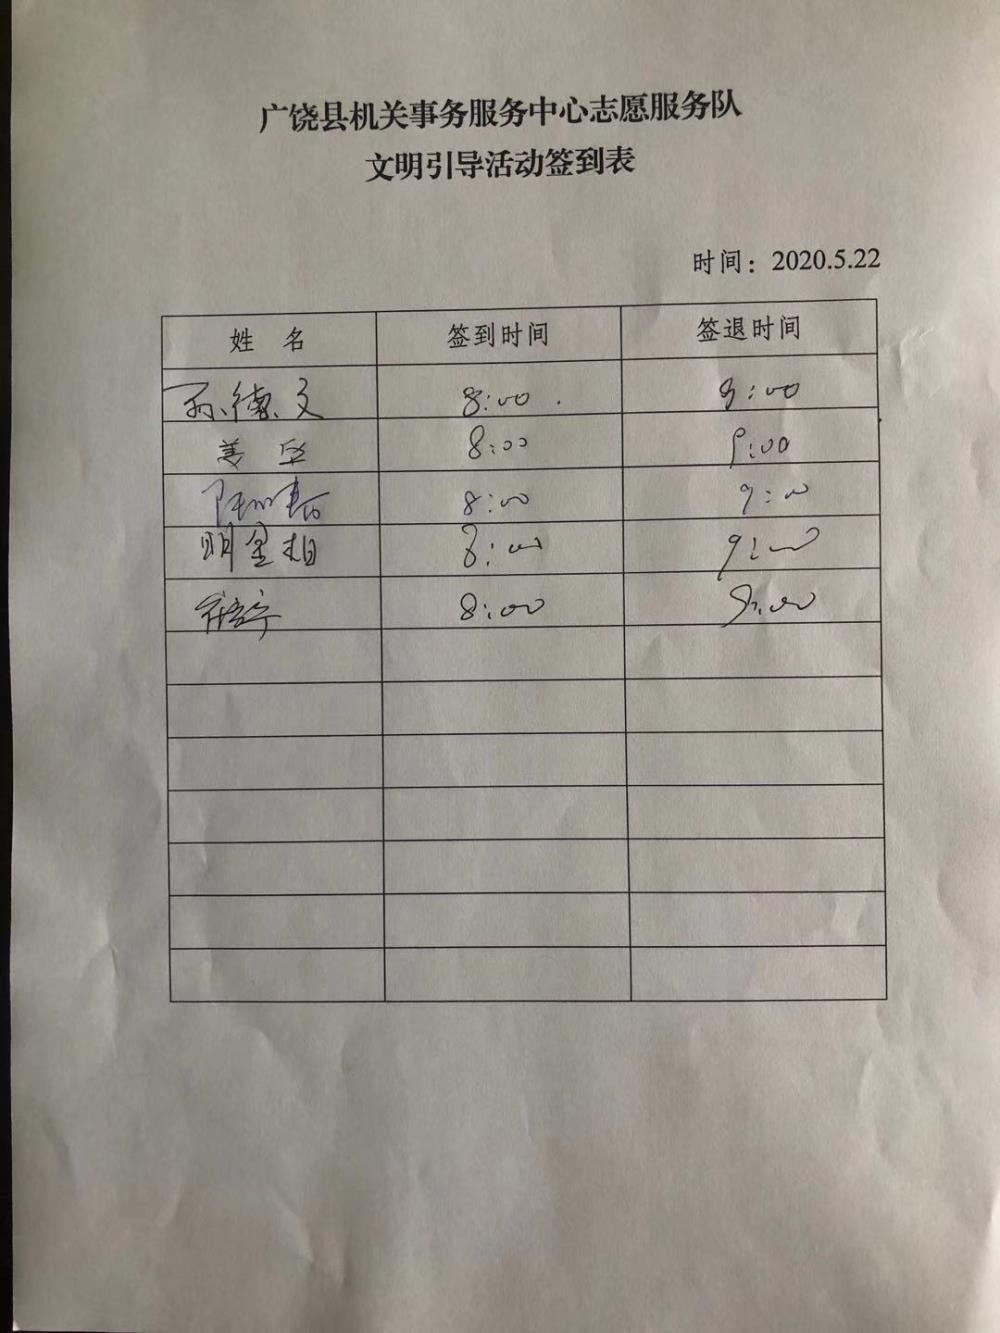 广饶县机关事务服务中心志愿服务队
文明引导活动签到表
时间：2020.5.22
姓 名 签到时间 签退时间
德文 8:00 9:00
8:00 9:00
8:00 9:00
明星相 8:00 9:00
8:00 9:00